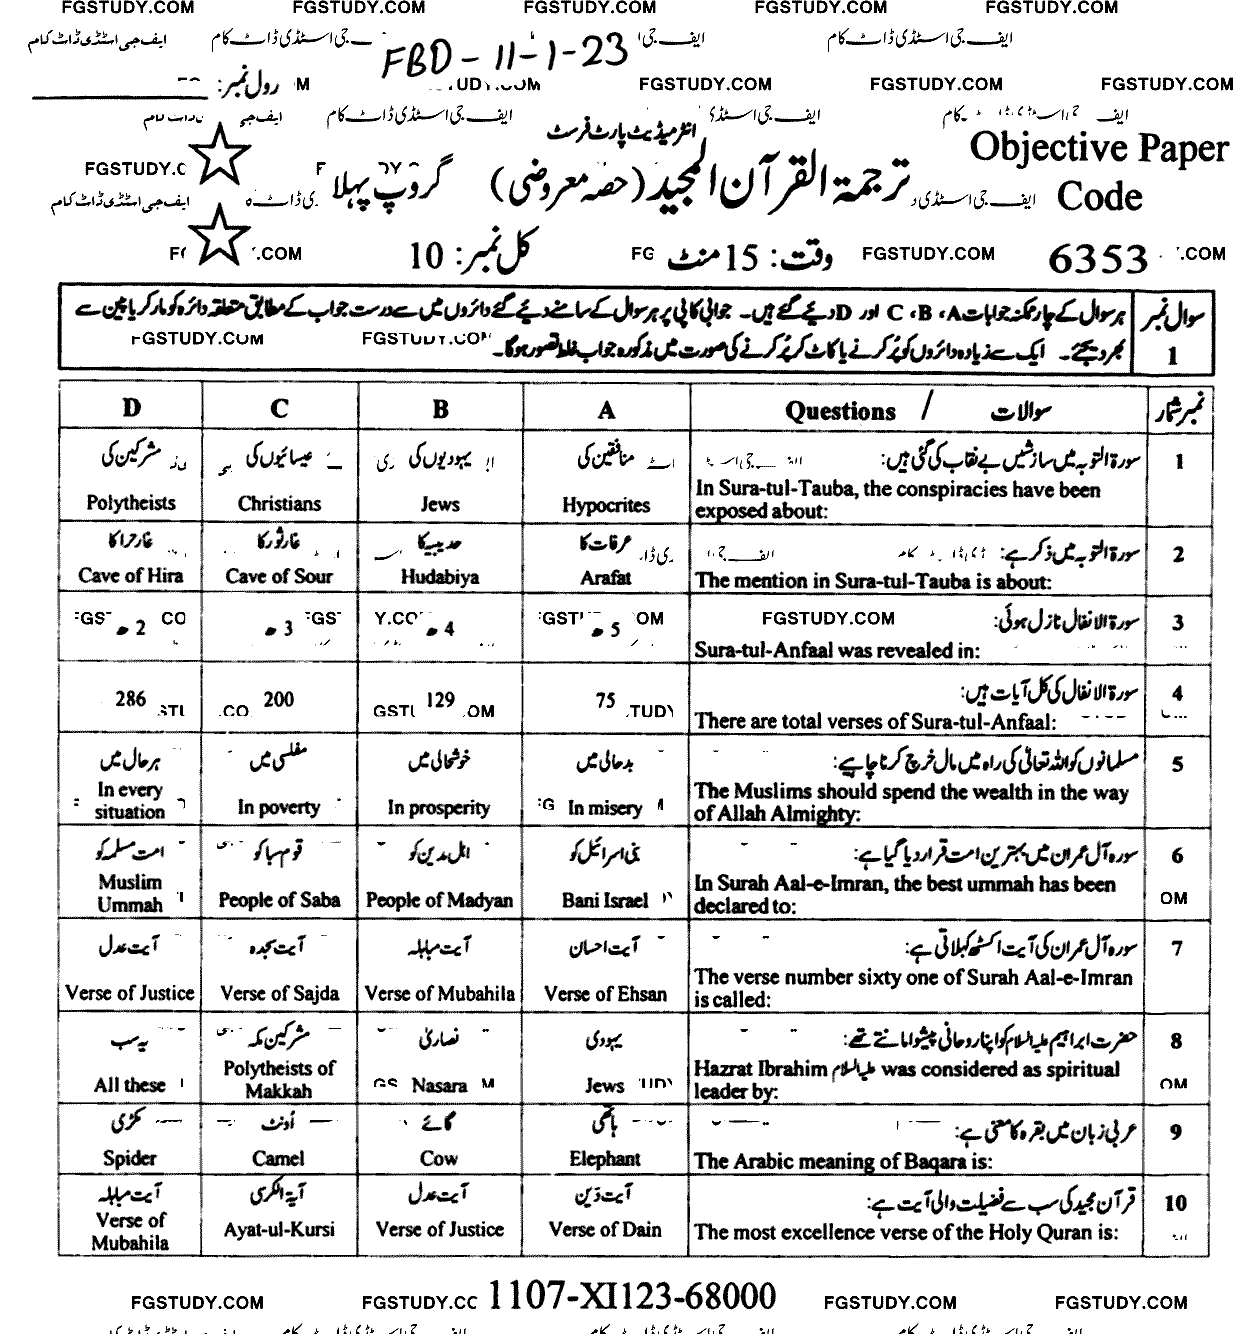 FGSTUDY.COM FGSTUDY.COM FGSTUDY.COM FGSTUDY.COM FGSTUDY.COM
ایف جی اسٹڈی ڈاٹ کام
FBD - 11-1-23
رول نمبر:
FGSTUDY.COM FGSTUDY.COM FGSTUDY.COM
انٹرمیڈیٹ پارٹ فرسٹ
Objective Paper
Code
6353
ترجمۃ القرآن المجید (حصہ معروضی) گروپ پہلا
وقت: 15 منٹ
کل نمبر: 10
FGSTUDY.COM
سوال نمبر 1
ہر سوال کے چار ممکنہ جوابات A، B، C اور D دیے گئے ہیں۔ جوابی کاپی پر ہر سوال کے سامنے دیے گئے دائروں میں سے درست جواب کے مطابق متعلقہ دائرہ کو مارکر یا پین سے
بھر دیجئے۔ ایک سے زیادہ دائروں کو پُر کرنے یا کاٹ کر پُر کرنے کی صورت میں مذکورہ جواب غلط تصور ہوگا۔
نمبر شمار سوالات / Questions A B C D
1 سورۃ التوبہ میں سازشیں بے نقاب کی گئی ہیں: منافقین کی یہودیوں کی عیسائیوں کی مشرکین کی
In Sura-tul-Tauba, the conspiracies have been
exposed about: Hypocrites Jews Christians Polytheists
2 سورۃ التوبہ میں ذکر ہے: عرفات کا حدیبیہ کا غارِ ثور کا غارِ حرا کا
The mention in Sura-tul-Tauba is about: Arafat Hudabiya Cave of Sour Cave of Hira
3 سورۃ الانفال نازل ہوئی: 5 ھ 4 ھ 3 ھ 2 ھ
FGSTUDY.COM
Sura-tul-Anfaal was revealed in:
4 سورۃ الانفال کی کل آیات ہیں: 75 129 200 286
There are total verses of Sura-tul-Anfaal:
5 مسلمانوں کو اللہ تعالیٰ کی راہ میں مال خرچ کرنا چاہیے: بدحالی میں خوشحالی میں مفلسی میں ہر حال میں
The Muslims should spend the wealth in the way
of Allah Almighty: In misery In prosperity In poverty In every situation
6 سورہ آل عمران میں بہترین امت قرار دیا گیا ہے: بنی اسرائیل کو اہل مدین کو قوم سبا کو امت مسلمہ کو
In Surah Aal-e-Imran, the best ummah has been
declared to: Bani Israel People of Madyan People of Saba Muslim Ummah
7 سورہ آل عمران کی آیت اکسٹھ کہلاتی ہے: آیت احسان آیت مباہلہ آیت سجدہ آیت عدل
The verse number sixty one of Surah Aal-e-Imran
is called: Verse of Ehsan Verse of Mubahila Verse of Sajda Verse of Justice
8 حضرت ابراہیم علیہ السلام کو اپنا روحانی پیشوا مانتے تھے: یہودی نصاریٰ مشرکین مکہ یہ سب
Hazrat Ibrahim علیہ السلام was considered as spiritual
leader by: Jews Nasara Polytheists of Makkah All these
9 عربی زبان میں بقرہ کا معنی ہے: ہاتھی گائے اُونٹ مکڑی
The Arabic meaning of Baqara is: Elephant Cow Camel Spider
10 قرآن مجید کی سب سے فضیلت والی آیت ہے: آیت دَین آیت عدل آیۃ الکرسی آیت مباہلہ
The most excellence verse of the Holy Quran is: Verse of Dain Verse of Justice Ayat-ul-Kursi Verse of Mubahila
1107-XI123-68000
FGSTUDY.COM FGSTUDY.CC FGSTUDY.COM FGSTUDY.COM